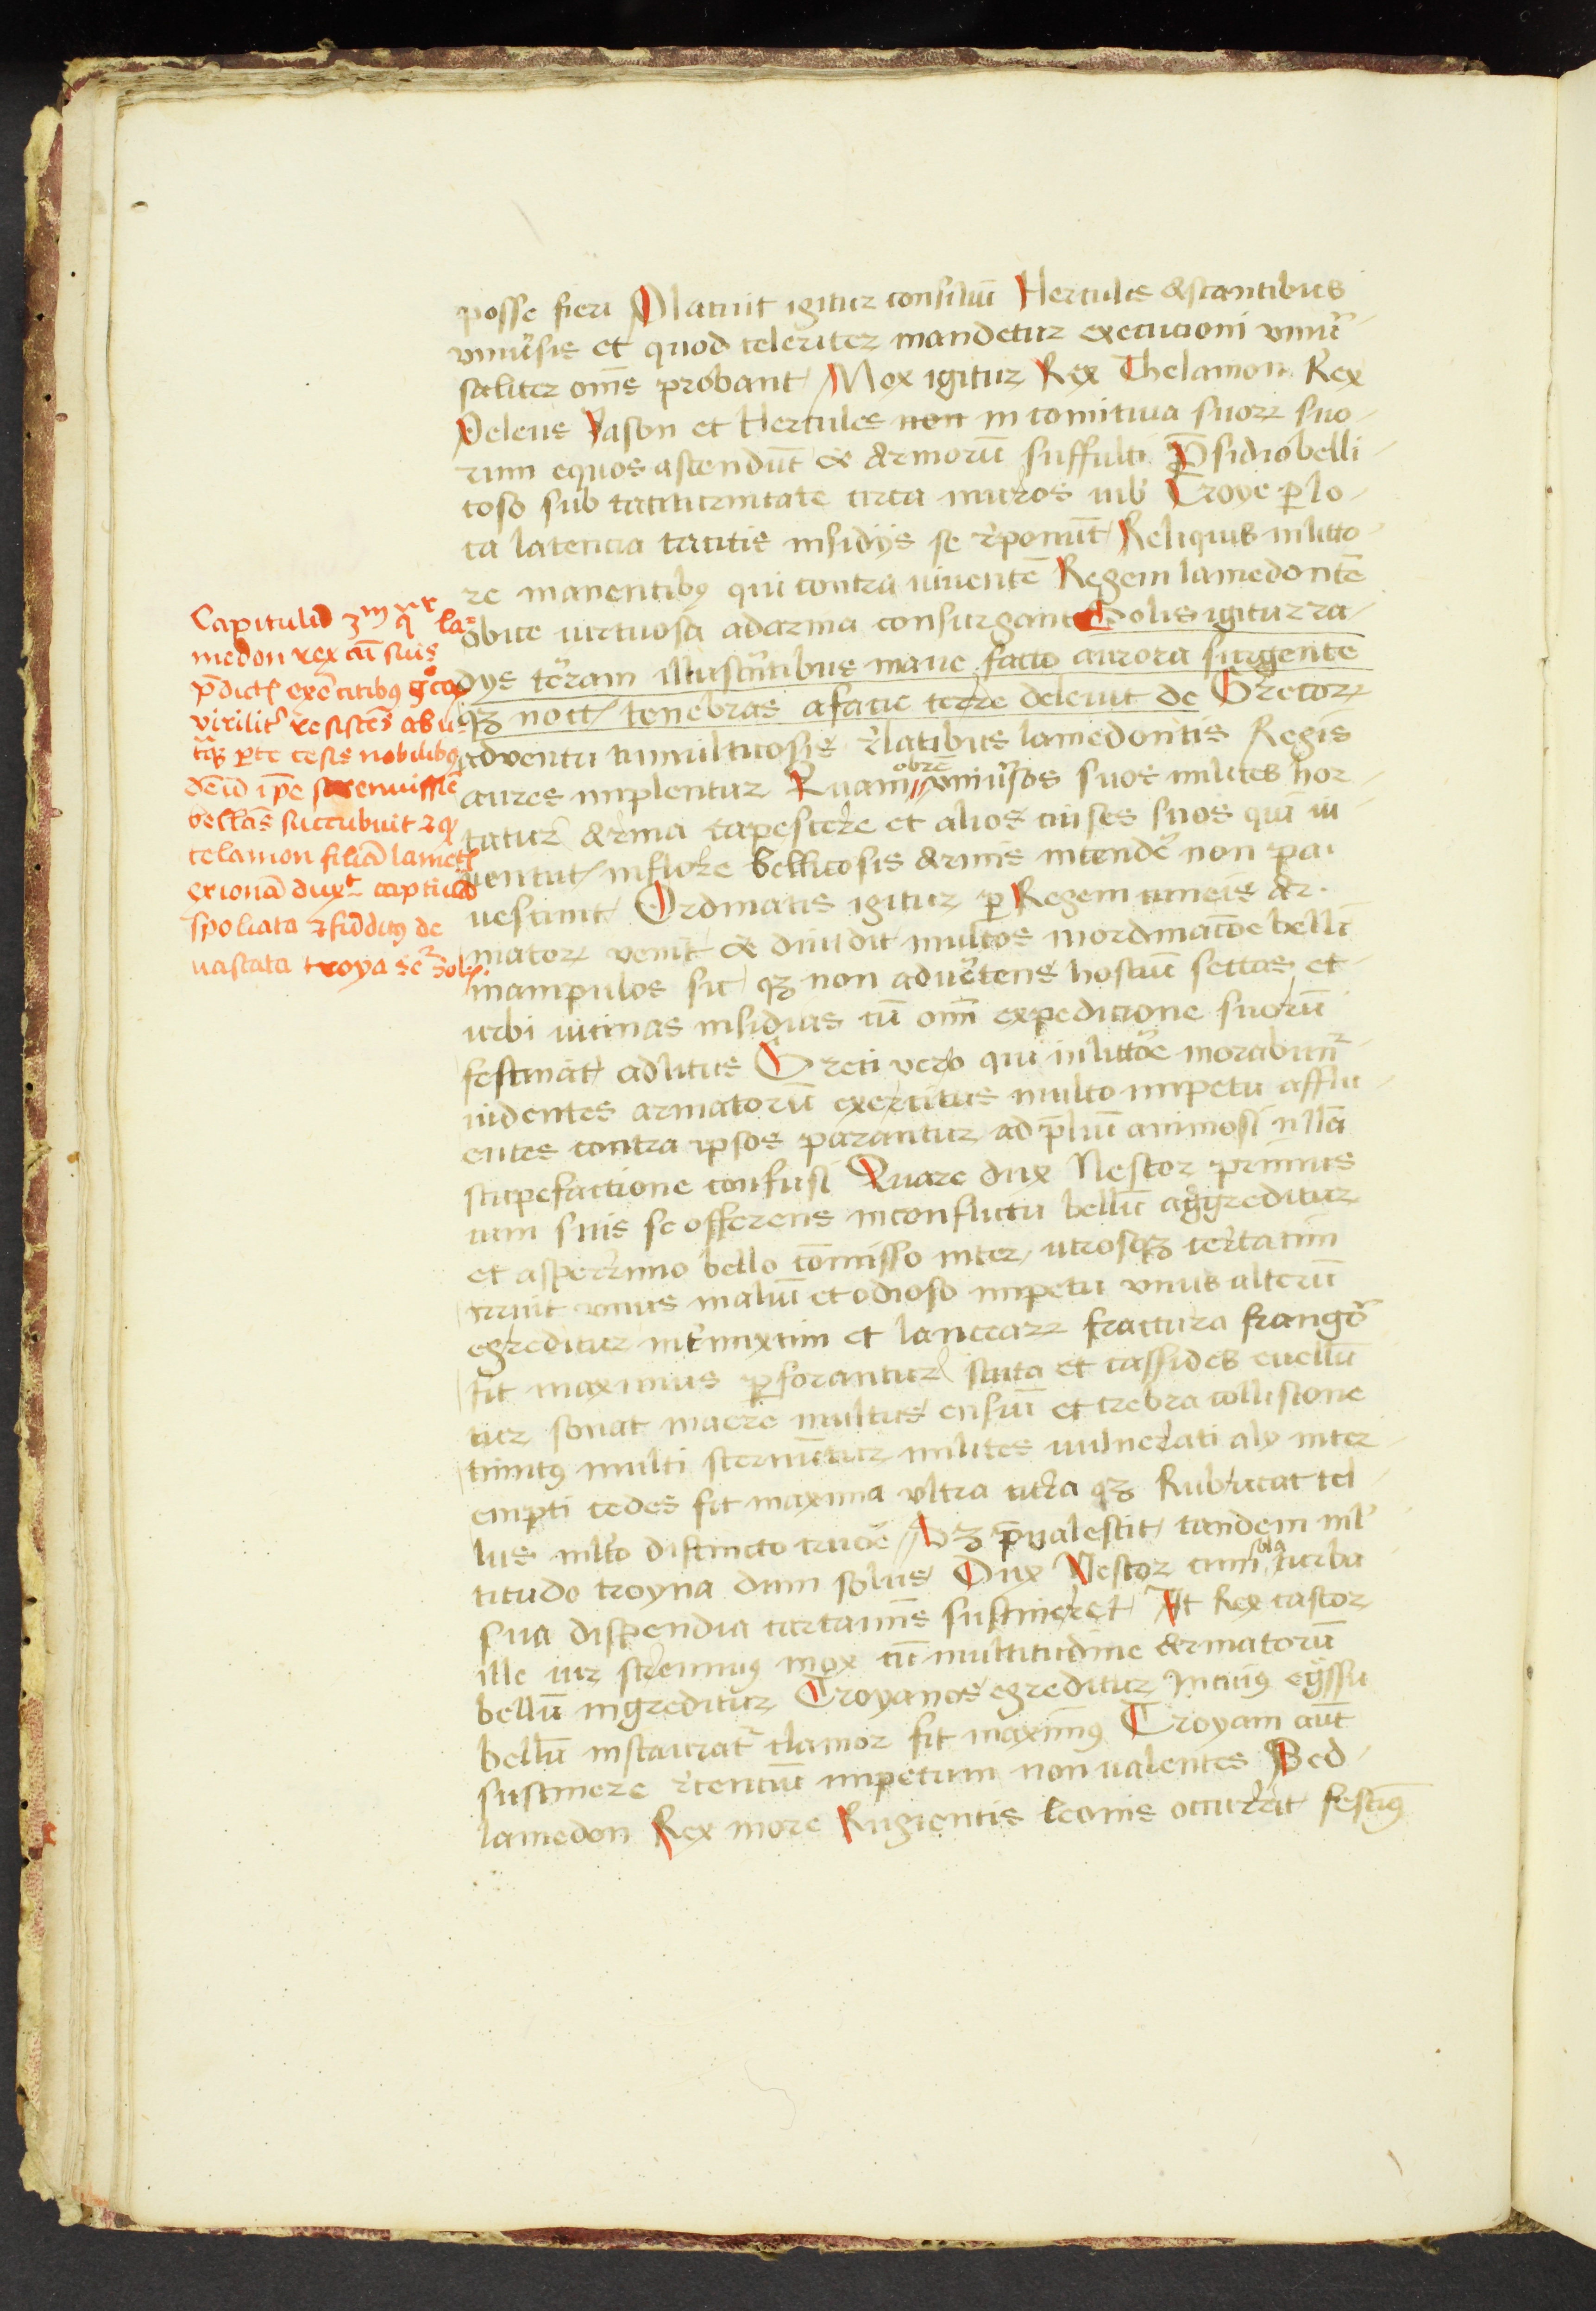 posse fieri Placuit igitur consiliū Herculis astantibus
vniūsis et quod celeriter mandetur execucioni vniū
saliter oīns probant Mox igitur Rex Thelamon Rex
Peleus Jason et Hercules non in comitiua suorꝝ suo
rum equos ascendūt & armorū suffulti P̄sidio belli
coso sub taciturnitate circa muros urb Troye ꝑ lo
ca latencia tacitis insidijs se r̄ponūt Reliquis in litto
re manentibꝰ qui contra uiuentē Regem lamedontē
obice uirtuosa ad arma consurgant Solis igitur ra
dys terram illustrātibus mane facto aurora surgente
qꝫ noct tenebras a facie terre deleuit de Grecorꝝ
aduentu tumultuosis r̄latibus lamedontis Regis
aures implentur Quam obrē vniūsos suos milites hor
tatur arma capescere et alios ciues suos quā iu
uentut in flore bellicosis armis intendē non pa
uescunt Ordinatis igitur ꝑ Regem cuneis ar
matorꝝ venit & diuidit multos in ordinacōe belli
manipulos sic qꝫ non aduertens hostiū sectas et
urbi uicinas insidias cū omī expedicione suorū
festinat ad litus Greci vero qui in littore morabunt
uidentes armatorū exercitus multo impetu afflu
entes contra ipsos parantur ad p̄liū animosi nllā
stupefactione confusi Quare dux Nestor primus
cum suis se offerens in conflictu bellū aggreditur
et asperrimo bello cōmisso inter utrosqꝫ certatim
irruit vnus in aliū et odioso impetu vnus alterū
egreditur int̄mixtim et lancearꝝ fractura frangor
fit maximus ꝑforantur scuta et cassides euellū
tur sonat in aere multus ensiū et crebra collisione
tinnitꝰ multi sternūtur milites uulnerati alij inter
empti cedes fit maxima vltra citra qꝫ Rubricat tel
lus mlto distincto cruore Sꝫ p̄ualescit tandem ml
titudo troyna dum solus Dux Nestor cum sola turba
sua dispendia certamīs sustineret At Rex castor
ille uir strennuꝰ mox cū multitudine armatorū
bellū ingreditur Troyanos egreditur In cuiꝰ egssu
bellū instaurat clamor fit maximꝰ Troyani aūt
sustinere r̄centiū impetum non ualentes Sed
lamedon Rex more Rugientis leonis occurrit festinꝰ
Capitulū 3m qr la=
medon rex cū suis
p̄dict exercitibꝰ grecoꝝ
virilit resistēs ab u=
traqꝫ ꝑte cesis nobilibꝰ
deīd ip̄e strenuissīe
bellās succubuit et qꝫ
telamon filiā lamet
exionā duxt captiuā
spoliata et fūditꝰ de
uastata troya